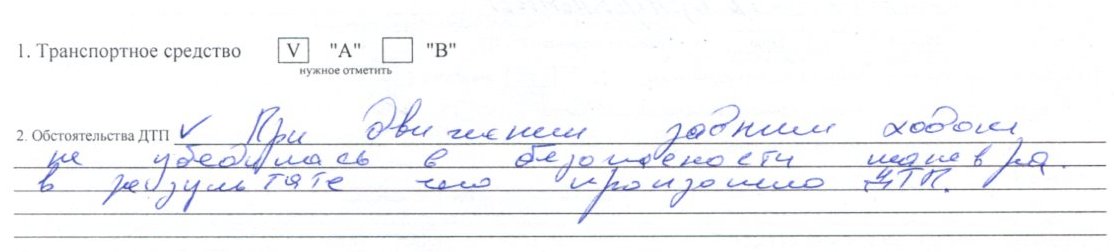 1. Транспортное средство V "А" "В"
нужное отметить
2. Обстоятельства ДТП V При движении задним ходом
не убедилась в безопасности маневра.
в результате чего произошло ДТП.